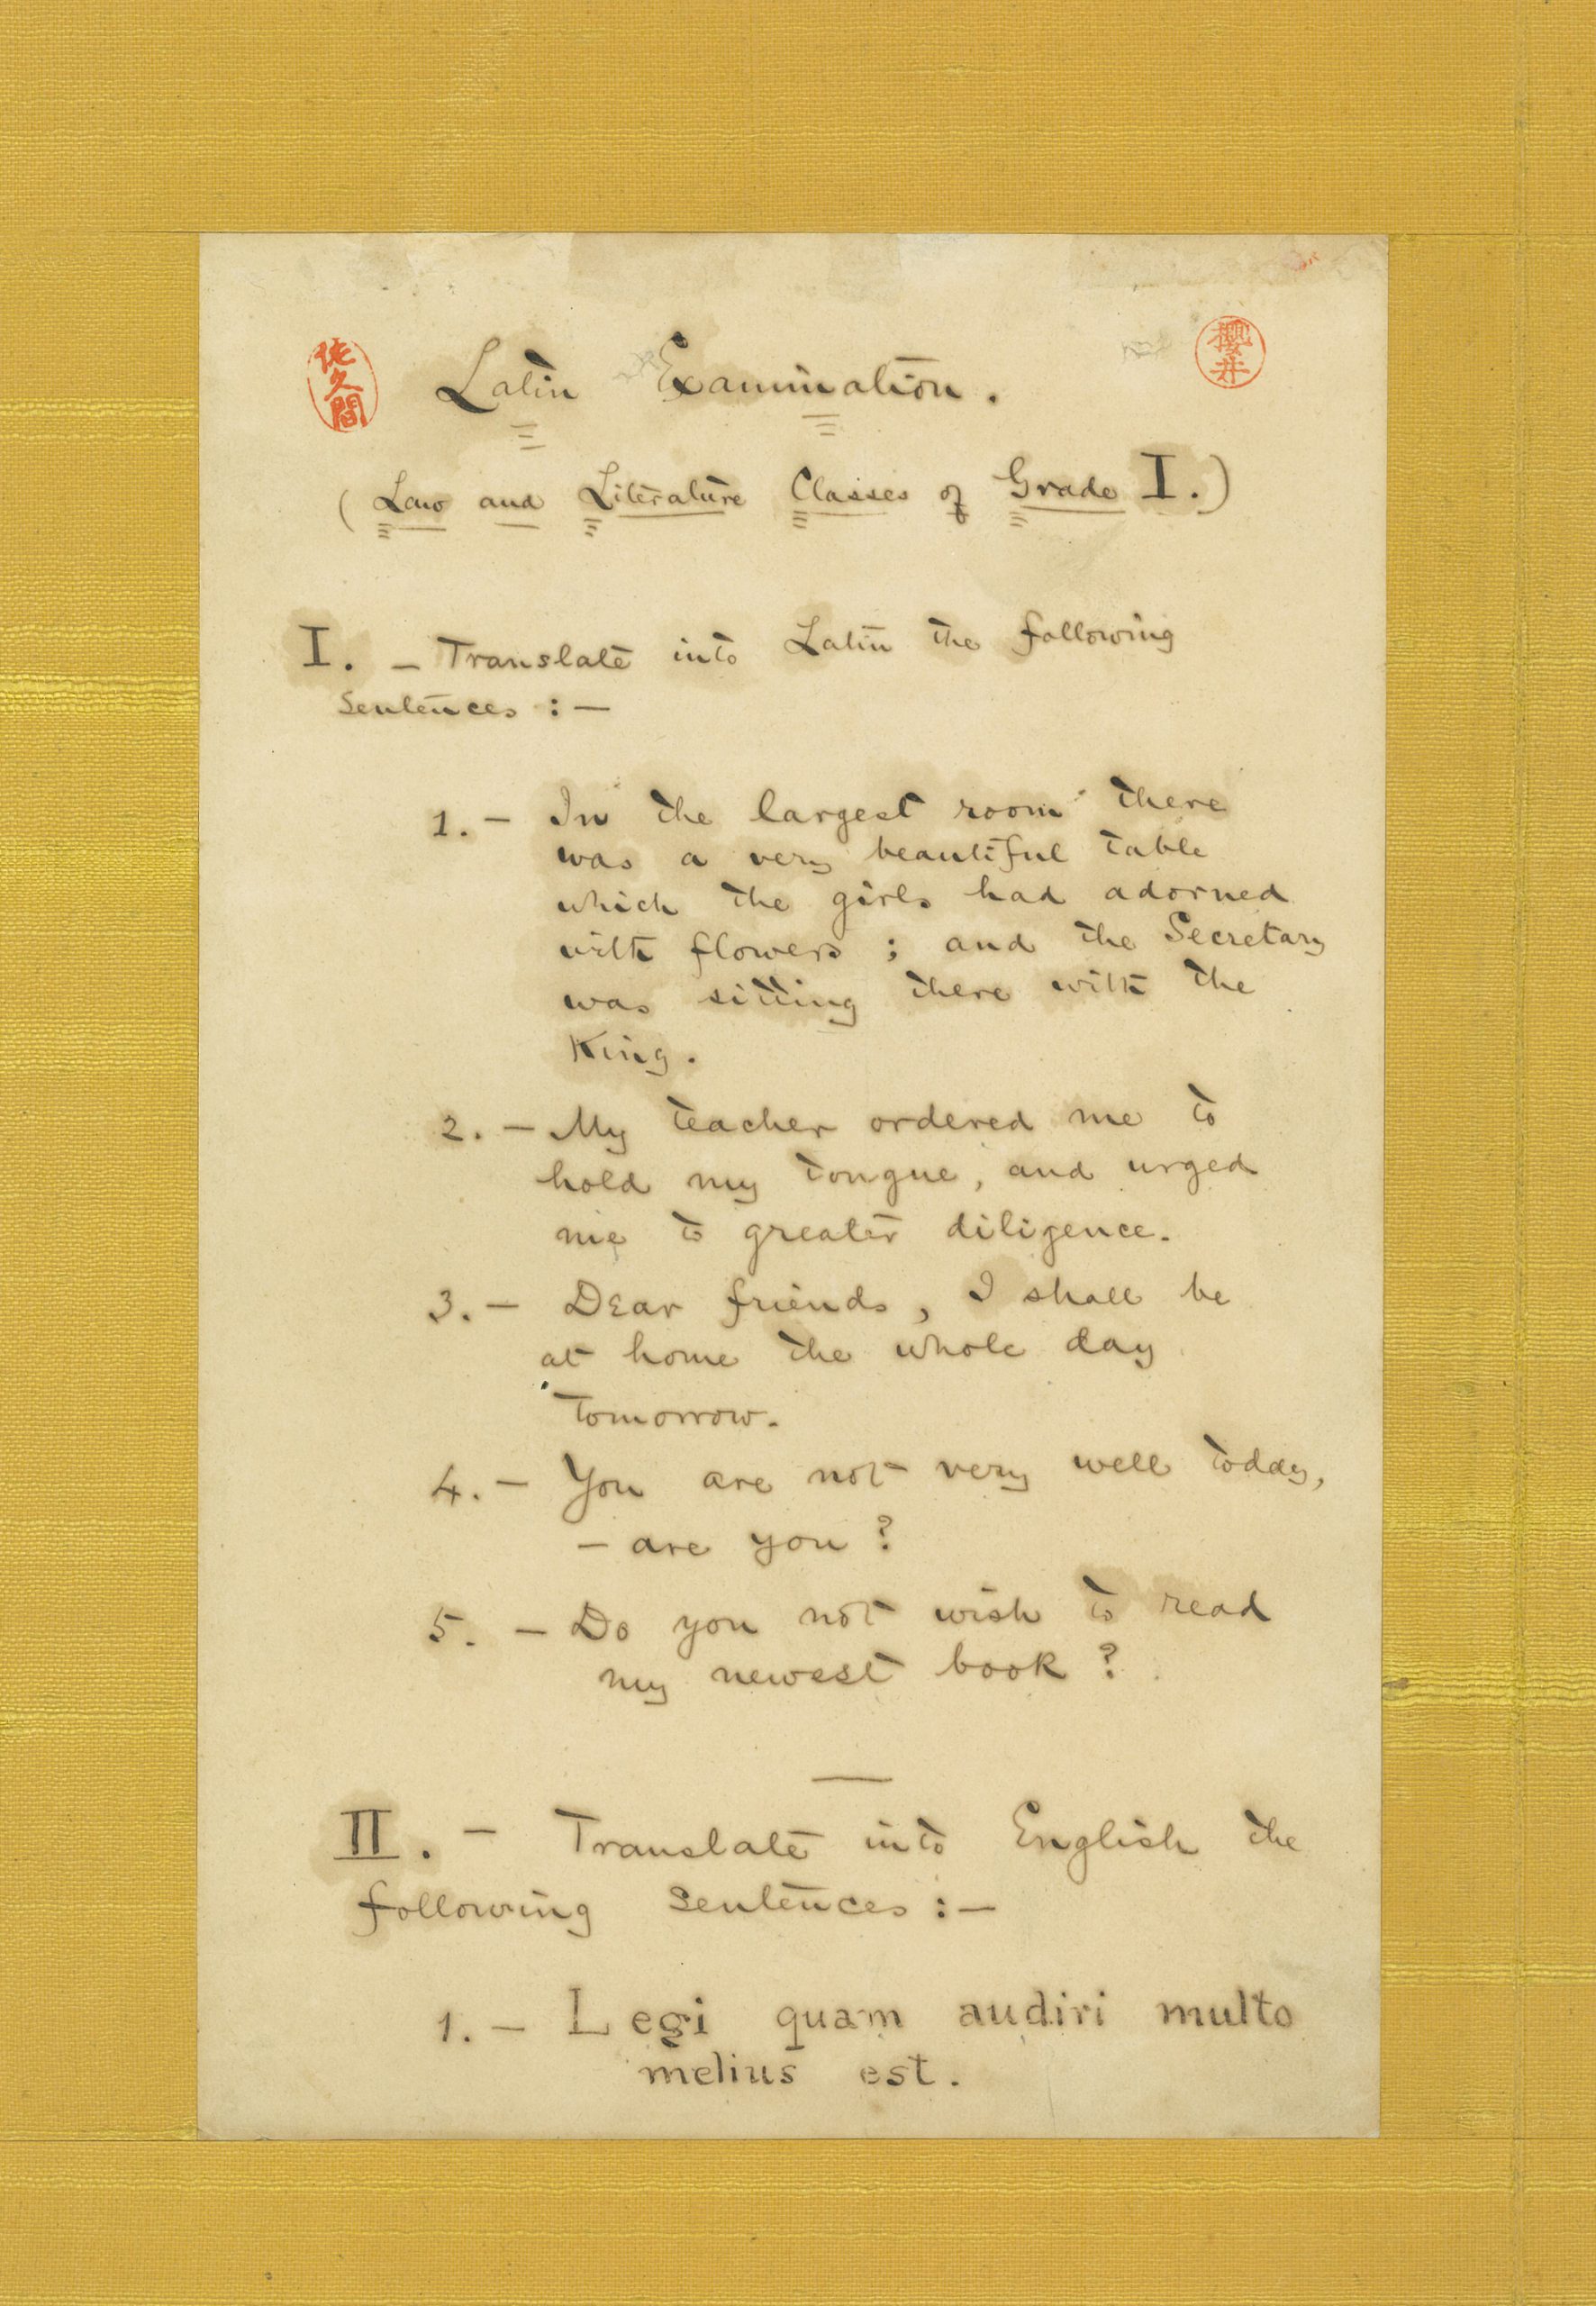 佐久間
櫻井
Latin Examination.
(Law and Literature Classes of Grade I.)
I. — Translate into Latin the following
sentences :—
1. — In the largest room there
was a very beautiful table
which the girls had adorned
with flowers ; and the Secretary
was sitting there with the
King.
2. — My teacher ordered me to
hold my tongue, and urged
me to greater diligence.
3. — Dear friends, I shall be
at home the whole day
tomorrow.
4. — You are not very well today,
— are you ?
5. — Do you not wish to read
my newest book ?
II. — Translate into English the
following sentences :—
1. — Legi quam audiri multo
melius est.